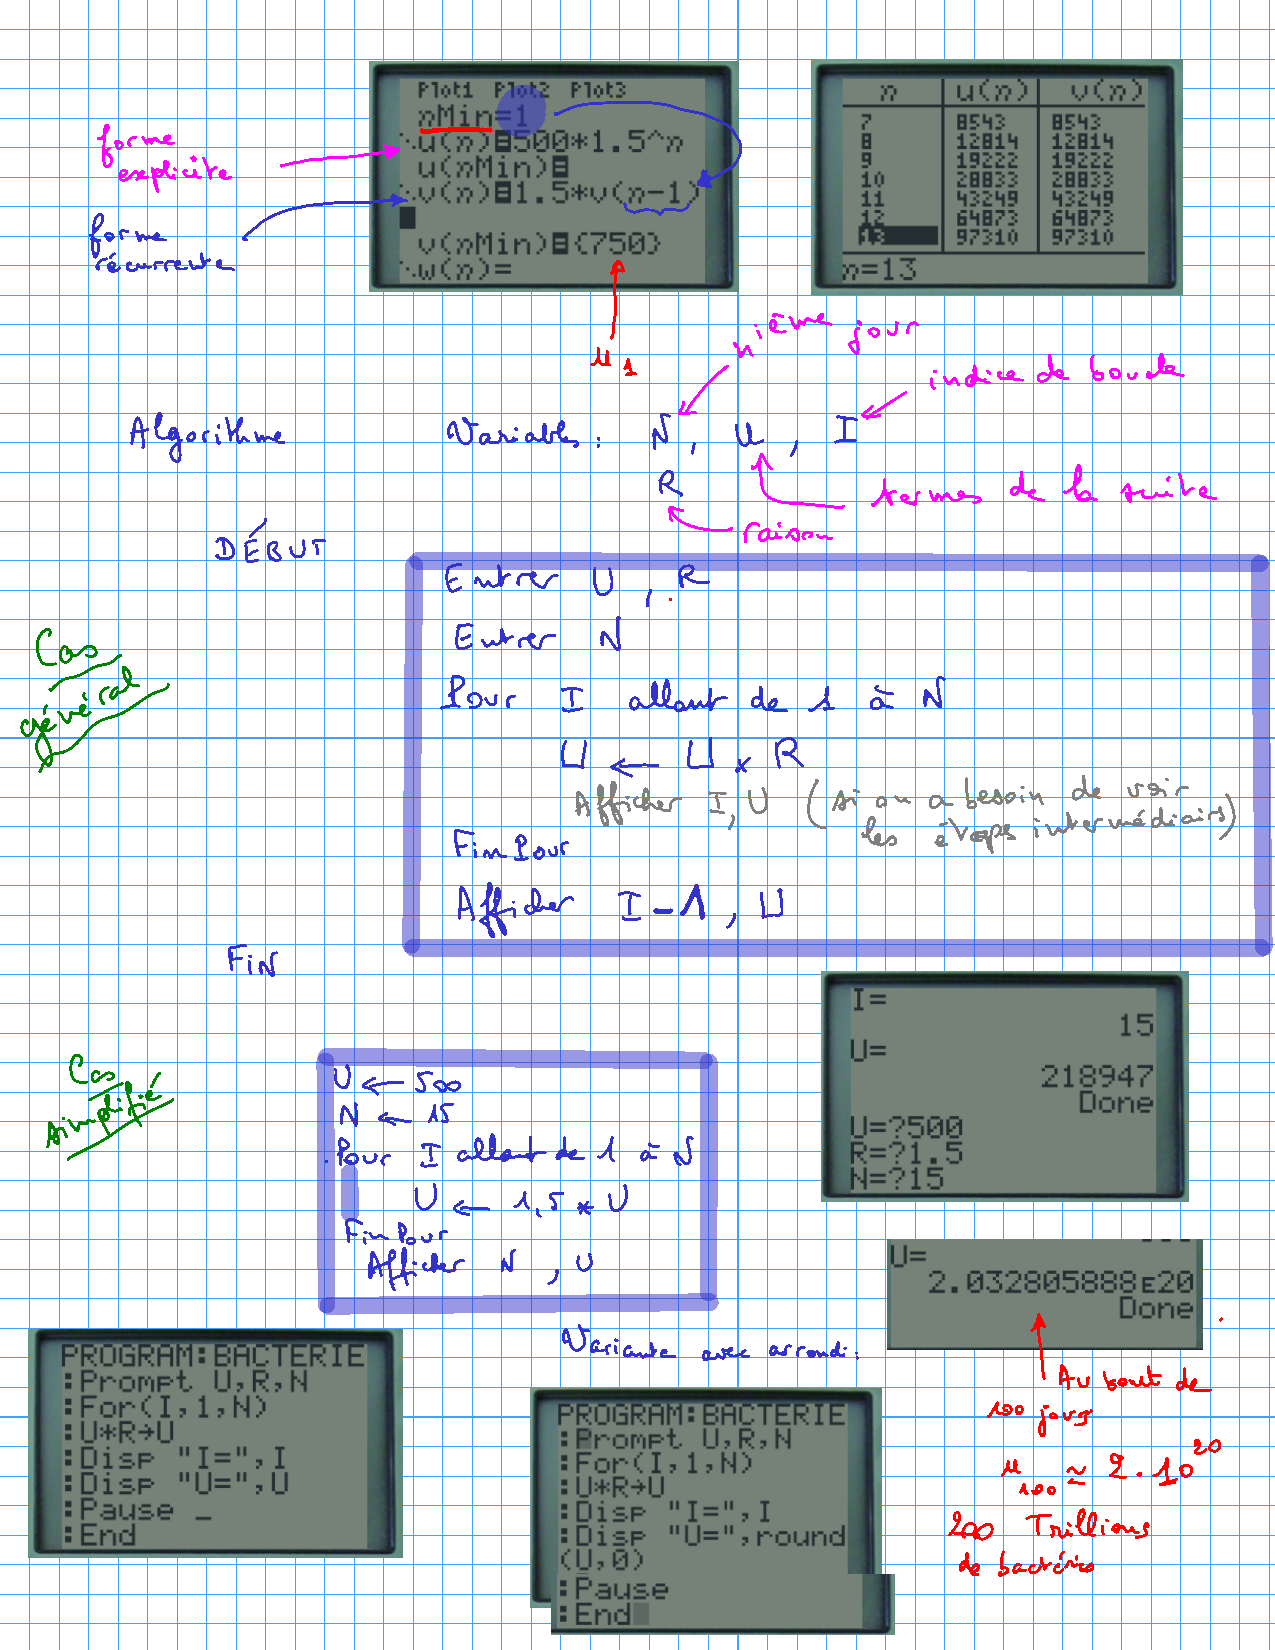 Plot1 Plot2 Plot3
nMin=1
u(n)=500*1.5^n
u(nMin)=
v(n)=1.5*v(n-1)
v(nMin)=(750)
w(n)=
forme
explicite
forme
récurrente
u1
n u(n) v(n)
7 8543 8543
8 12814 12814
9 19222 19222
10 28833 28833
11 43249 43249
12 64873 64873
13 97310 97310
n=13
nième jour
indice de boucle
Algorithme
Variables : N, U, I
R
termes de la suite
raison
DÉBUT
Cas
général
Entrer U, R
Entrer N
Pour I allant de 1 à N
U ← U × R
Afficher I, U (si on a besoin de voir
les étapes intermédiairs)
FinPour
Afficher I-1, U
FIN
I=
15
U=
218947
Done
U=?500
R=?1.5
N=?15
Cas
simplifié
U ← 500
N ← 15
Pour I allant de 1 à N
U ← 1,5 * U
FinPour
Afficher N, U
U=
2.032805888E20
Done
Au bout de
100 jours
u100 ≃ 2.10^20
200 Trillions
de bactéries
PROGRAM:BACTERIE
:Prompt U,R,N
:For(I,1,N)
:U*R→U
:Disp "I=",I
:Disp "U=",U
:Pause _
:End
Variante avec arrondi :
PROGRAM:BACTERIE
:Prompt U,R,N
:For(I,1,N)
:U*R→U
:Disp "I=",I
:Disp "U=",round
(U,0)
:Pause
:End